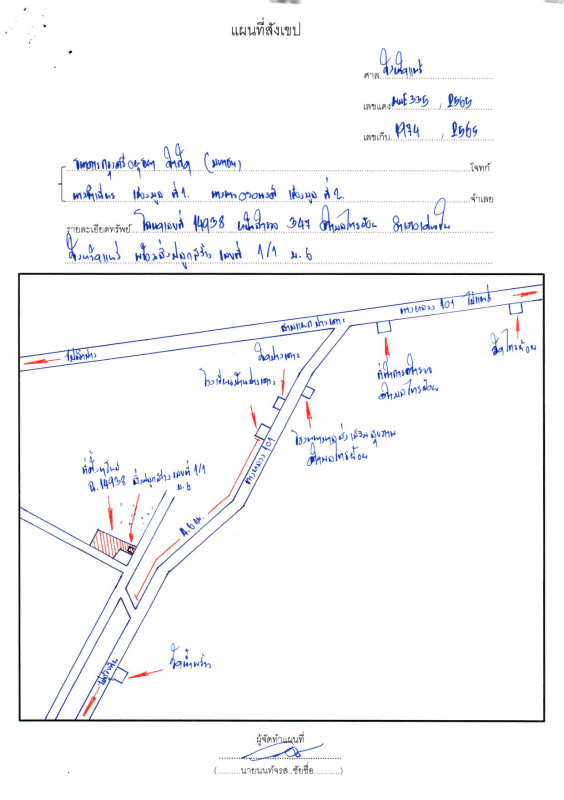 แผนที่สังเขป
ศาล จังหวัดแพร่
เลขแดง ผบE335 / 2565
เลขเก็บ 1974 / 2565
ธนาคารกรุงศรีอยุธยา จำกัด (มหาชน) โจทก์
ที่ 1. ที่ 2. จำเลย
รายละเอียดทรัพย์ โฉนดเลขที่ 14938 เนื้อที่ 347 ตำบลไทรย้อย อำเภอเด่นชัย
จังหวัดแพร่ พร้อมสิ่งปลูกสร้าง เลขที่ 1/1 ม.6
ทางหลวง 101 ไปแพร่
สามแยกปางเคาะ
ไปลำปาง
วัดปางเคาะ
โรงเรียนบ้านปางเคาะ
ที่ทำการ
ตำบลไทรย้อย
วัดไทรย้อย
โรงพยาบาลส่งเสริมสุขภาพ
ตำบลไทรย้อย
ทางหลวง 101
ที่ตั้งทรัพย์
ฉ.14938 สิ่งปลูกสร้าง เลขที่ 1/1
ม.6
กม.
วัดน้ำพร้า
ผู้จัดทำแผนที่
(นายนนท์จรส ชัยชื่อ)